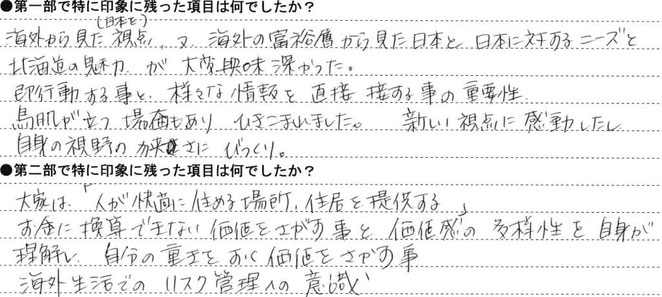 ●第一部で特に印象に残った項目は何でしたか？
(日本を)
海外から見た視点、又、海外の富裕層から見た日本と日本に対するニーズと
北海道の魅力が大変興味深かった。
即行動する事と、様々な情報を直接接する事の重要性
鳥肌が立つ場面もあり ひきこまれました。 新しい視点に感動したし
自身の視野の狭さにびっくり。
●第二部で特に印象に残った項目は何でしたか？
大家は、「人が快適に住める場所、住居を提供する」
お金に換算できない価値をさがす事と価値感の多様性を自身が
理解し、自分の重きをおく価値をさがす事
海外生活でのリスク管理への意識